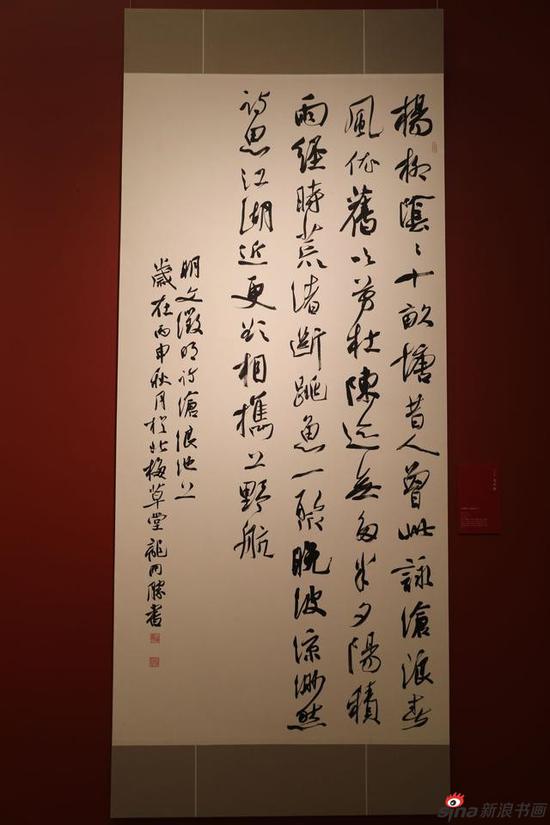 楊柳陰〻十畝塘昔人曾此詠滄浪春
風依舊吹芳杜陳迹無多半夕陽積
雨經時荒渚斷跳魚一聚晚波涼渺然
詩思江湖近更欲相攜上野航
明文徵明詩滄浪池上
歲在丙申秋月於北梅草堂 龍開勝書
sina新浪书画